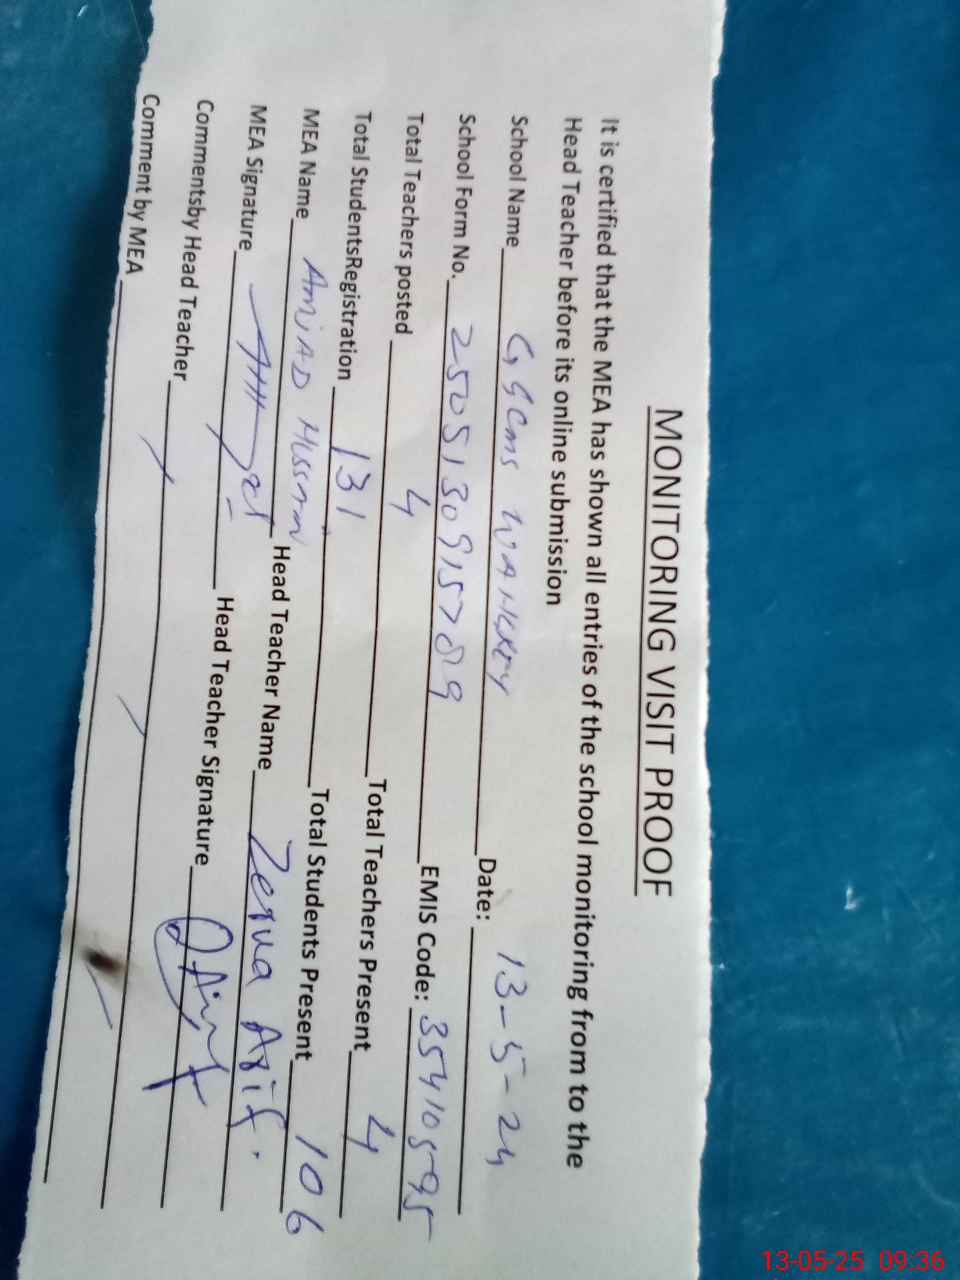 MONITORING VISIT PROOF
It is certified that the MEA has shown all entries of the school monitoring from to the
Head Teacher before its online submission
School Name GGCMS Date: 13-5-24
School Form No. 2505130915789 EMIS Code: 35410595
Total Teachers posted 4 Total Teachers Present 4
Total StudentsRegistration 131 Total Students Present 106
MEA Name AMJAD HUSSAIN Head Teacher Name Zerua Asif.
MEA Signature Head Teacher Signature
Commentsby Head Teacher
Comment by MEA
13-05-25 09:36